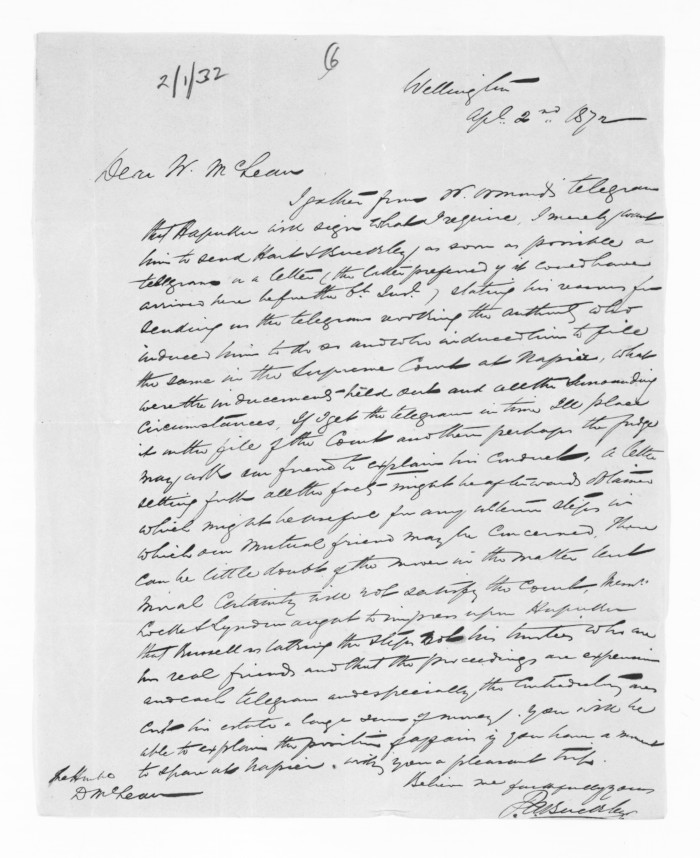 6
2/1/32
Wellington
Apl. 2nd 1872
Dear Mr. McLean
I gather from Mr. Ormond's telegram
that Hapuku will sign what I require. I merely want
him to send Hart & Buckley as soon as possible a
telegram or a letter (the latter preferred if it could have
arrived here before the 6t. Inst.) stating his reasons for
sending us the telegram revoking the authority who
induced him to do so and who induced him to file
the same in the Supreme Court at Napier, what
were the inducements held out and all the surrounding
circumstances. If I get the telegram in time Ill place
it on the file of the Court and then perhaps the Judge
may ask our friend to explain his conduct. A letter
setting forth all the facts might be afterwards obtained
which might be useful for any ulterior steps in
which our mutual friend may be concerned. There
can be little doubt of the mover in the matter but
moral certainty will not satisfy the Court. Messrs.
Locke & Lyndon ought to impress upon Hapuku
that Russell is taking the steps not his trustees who are
his real friends and that the proceedings are expensive
and each telegram and especially the contradictory ones
cost his estate a large sum of money. You will be
able to explain the position of affairs if you have a moment
to spare at Napier. Wishing you a pleasant trip.
Believe me faithfully yours
P. A. Buckley
The Honble
D McLean